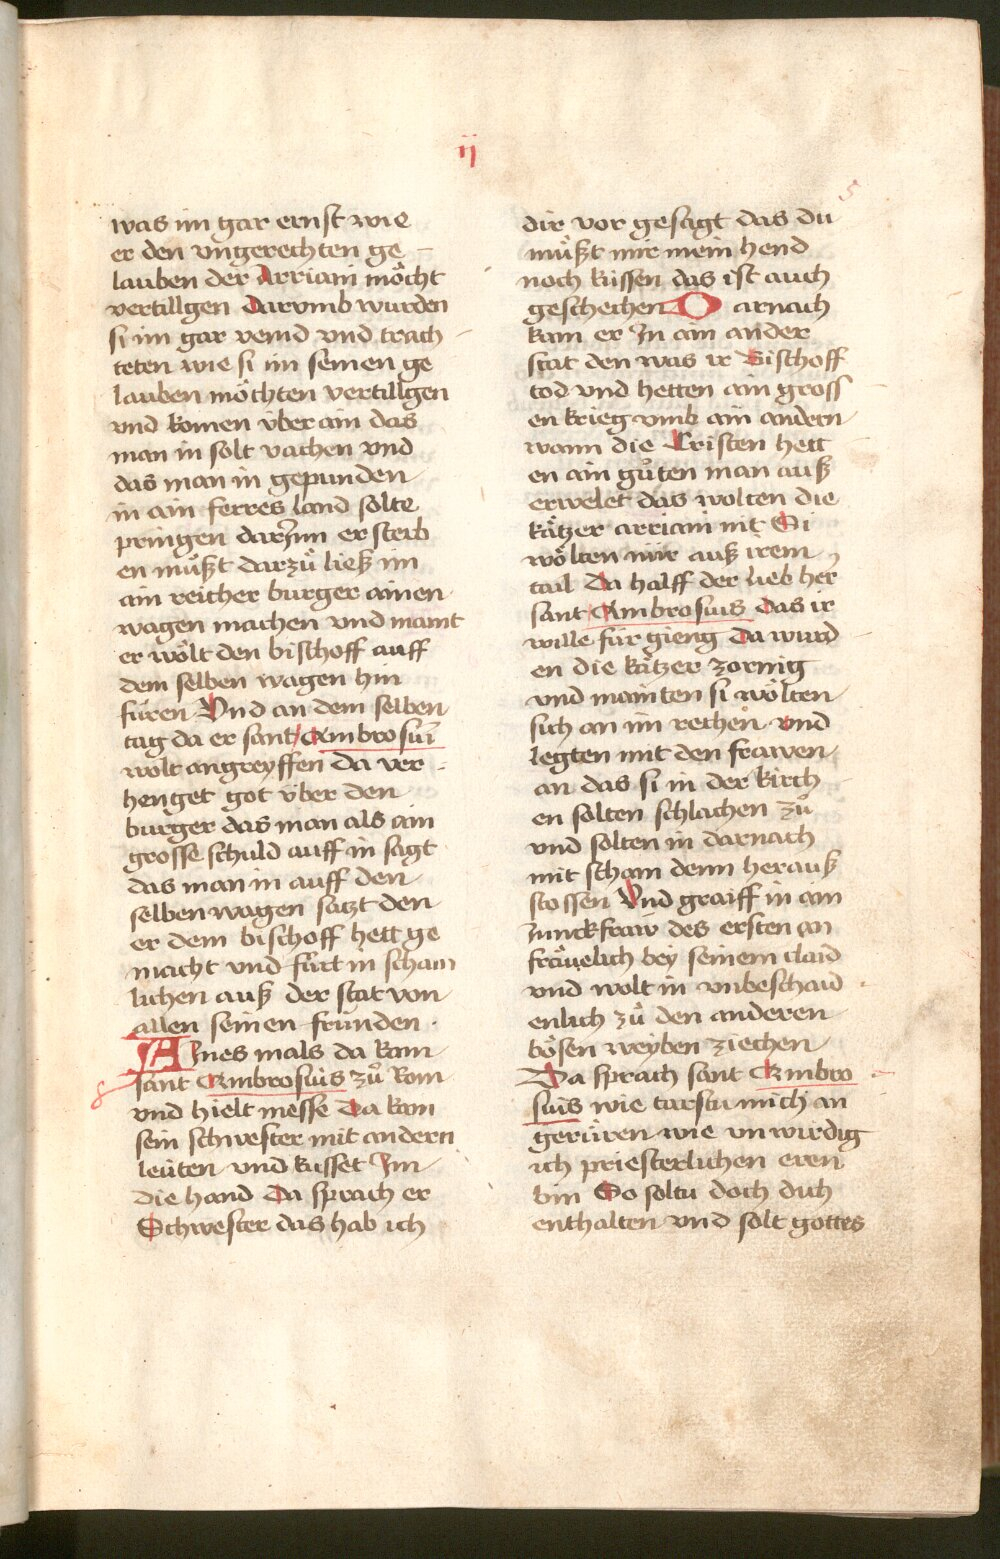 ij
5
was im gar ernst wie
er den vngerechten ge
lauben der Arriani möcht
vertillgen Darvmb wurden
si im gar veind vnd trach
teten wie si im seinen ge
lauben möchten vertillgen
vnd komen über ain das
man in solt vachen vnd
das man in gepunden
in ain ferres land solte
pringen darJnn er sterb
en müßt darzů ließ im
ain reicher burger ainen
wagen machen vnd maint
er wölt den bischoff auff
dem selben wagen hin
füren Vnd an dem selben
tag da er sant Ambrosiū
wolt angreyffen da ver
henget got über den
burger das man als ain
grosse schuld auff in sagt
das man in auff den
selben wagen satzt den
er dem bischoff hett ge
macht vnd fůrt in scham
lichen auß der stat von
allen seinen frúnden
AJnes mals da kam
sant Ambrosius zů Rom
vnd hielt messe Da kam
sein schwester mit andern
leüten vnd kusset Jm
die hand Da sprach er
Schwester das hab ich
dir vor gesagt das du
müßt mir mein hend
noch küssen das ist auch
geschechen Darnach
kam er Jn ain ander
stat den was ir Bischoff
tod vnd hetten ain gross
en krieg vmb ain andern
wann die Cristen hett
en ain gůten man auß
erwelet das wolten die
kätzer arriani nit Si
wölten nur auß irem
tail Da halff der lieb her
sant Ambrosius das ir
wille für gieng Da wurd
en die kätzer zornig
vnd mainten si wölten
sich an im rechen vnd
legten mit den frawen
an das si in der kirch
en solten schlachen zů
vnd solten in darnach
mit scham denn herauß
stossen Vnd graiff in ain
Junckfraw des ersten an
fräuelich bey seinem claid
vnd wolt in vnbeschaid
enlich zů den anderen
bösen weyben ziechen
Da sprach sant Ambro
sius wie tarstu mich an
gerüren wie vnwirdig
ich priesterlichen eren
bin So soltu doch dich
enthalten vnd solt gottes